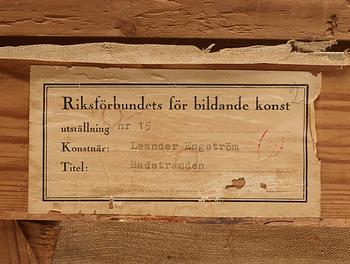 Riksförbundets för bildande konst
utställning nr 15
Konstnär: Leander Engström
Titel: Badstranden